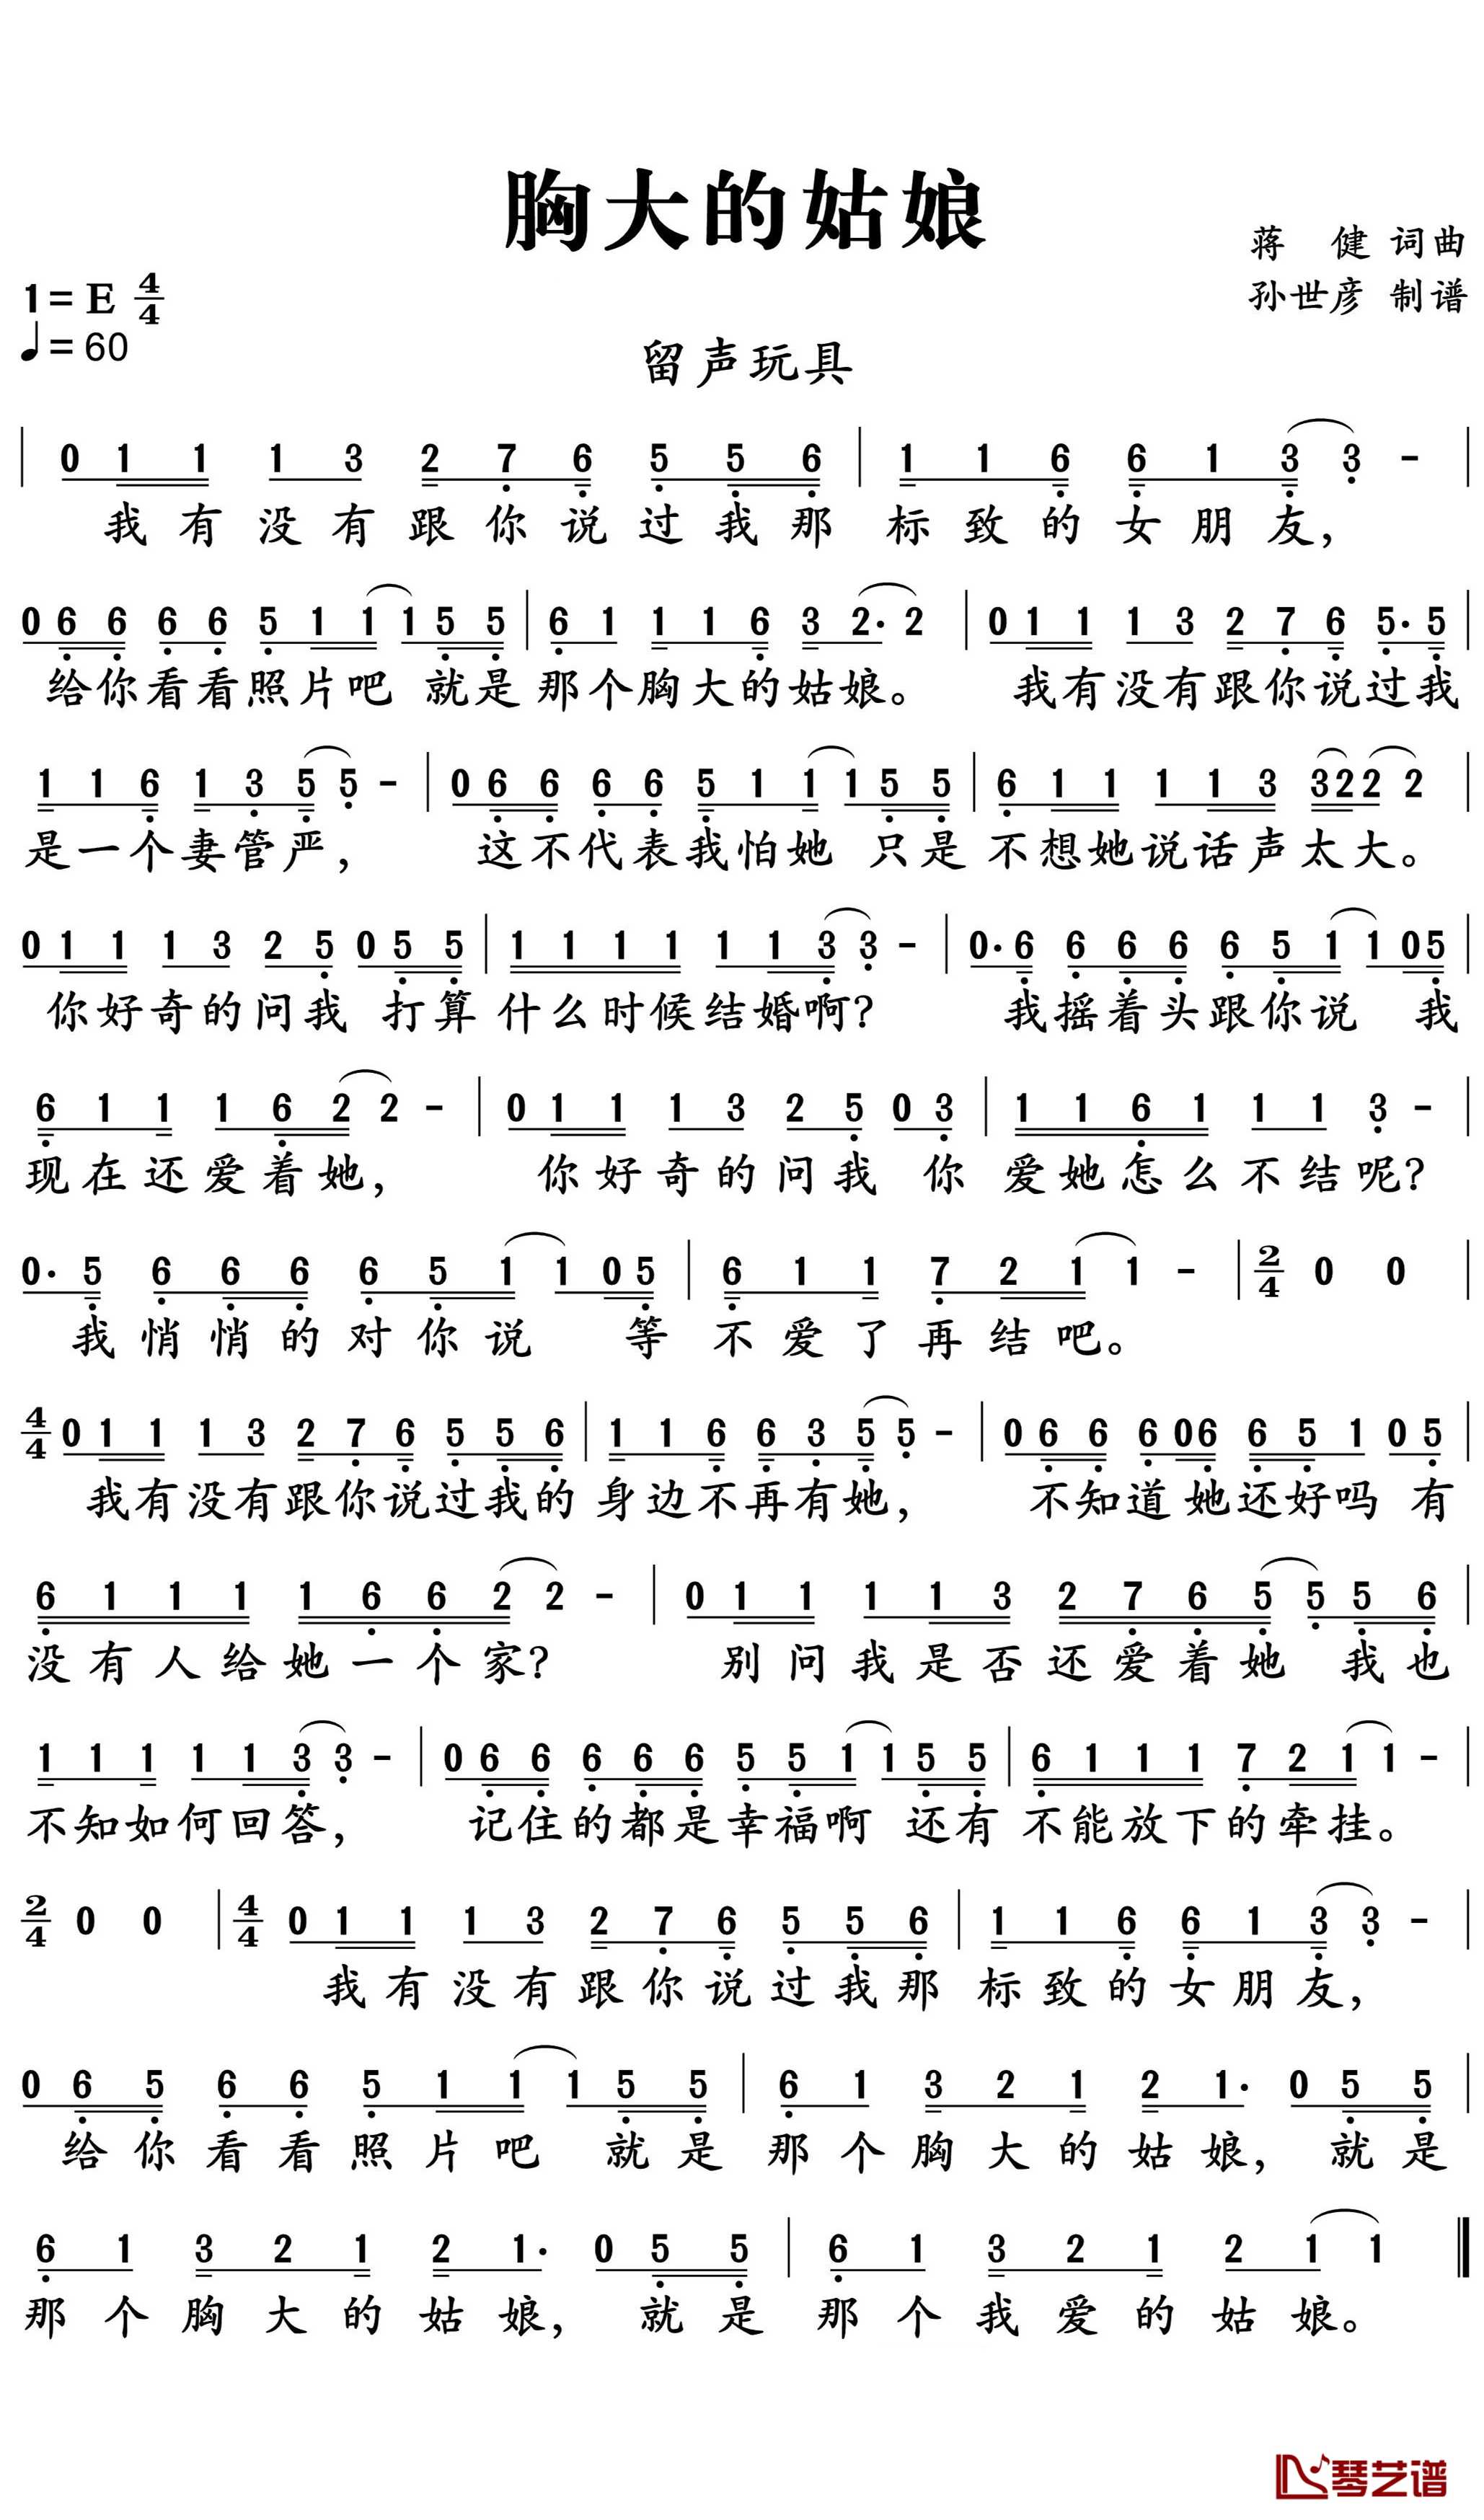 胸大的姑娘
蒋 健 词曲
孙世彦 制谱
1=E 4/4
♩=60
留声玩具
| 0 1 1 1 3 2 7 6 5 5 6 | 1 1 6 6 1 3 3 - |
我有没有跟你说过我那 标致的女朋友，
0 6 6 6 6 5 1 1 1 5 5 | 6 1 1 1 6 3 2· 2 | 0 1 1 1 3 2 7 6 5· 5 |
给你看看照片吧 就是 那个胸大的姑娘。 我有没有跟你说过我
1 1 6 1 3 5 5 - | 0 6 6 6 6 5 1 1 1 5 5 | 6 1 1 1 1 3 3 2 2 2 |
是一个妻管严， 这不代表我怕她 只是 不想她说话声太大。
0 1 1 1 3 2 5 0 5 5 | 1 1 1 1 1 1 3 3 - | 0· 6 6 6 6 6 5 1 1 0 5 |
你好奇的问我 打算 什么时候结婚啊？ 我摇着头跟你说 我
6 1 1 1 6 2 2 - | 0 1 1 1 3 2 5 0 3 | 1 1 6 1 1 1 3 - |
现在还爱着她， 你好奇的问我 你 爱她怎么不结呢？
0· 5 6 6 6 6 5 1 1 0 5 | 6 1 1 7 2 1 1 - | 2/4 0 0 |
我悄悄的对你说 等 不爱了再结吧。
4/4 0 1 1 1 3 2 7 6 5 5 6 | 1 1 6 6 3 5 5 - | 0 6 6 6 0 6 6 5 1 0 5 |
我有没有跟你说过我的 身边不再有她， 不知道她还好吗 有
6 1 1 1 1 6 6 2 2 - | 0 1 1 1 1 3 2 7 6 5 5 5 6 |
没有人给她一个家？ 别问我是否还爱着她 我也
1 1 1 1 1 3 3 - | 0 6 6 6 6 6 5 5 1 1 5 5 | 6 1 1 1 7 2 1 1 - |
不知如何回答， 记住的都是幸福啊 还有 不能放下的牵挂。
2/4 0 0 | 4/4 0 1 1 1 3 2 7 6 5 5 6 | 1 1 6 6 1 3 3 - |
我有没有跟你说过我那 标致的女朋友，
0 6 5 6 6 5 1 1 1 5 5 | 6 1 3 2 1 2 1· 0 5 5 |
给你看看照片吧 就是 那个胸大的姑娘， 就是
6 1 3 2 1 2 1· 0 5 5 | 6 1 3 2 1 2 1 1 ‖
那个胸大的姑娘， 就是 那个我爱的姑娘。
琴艺谱